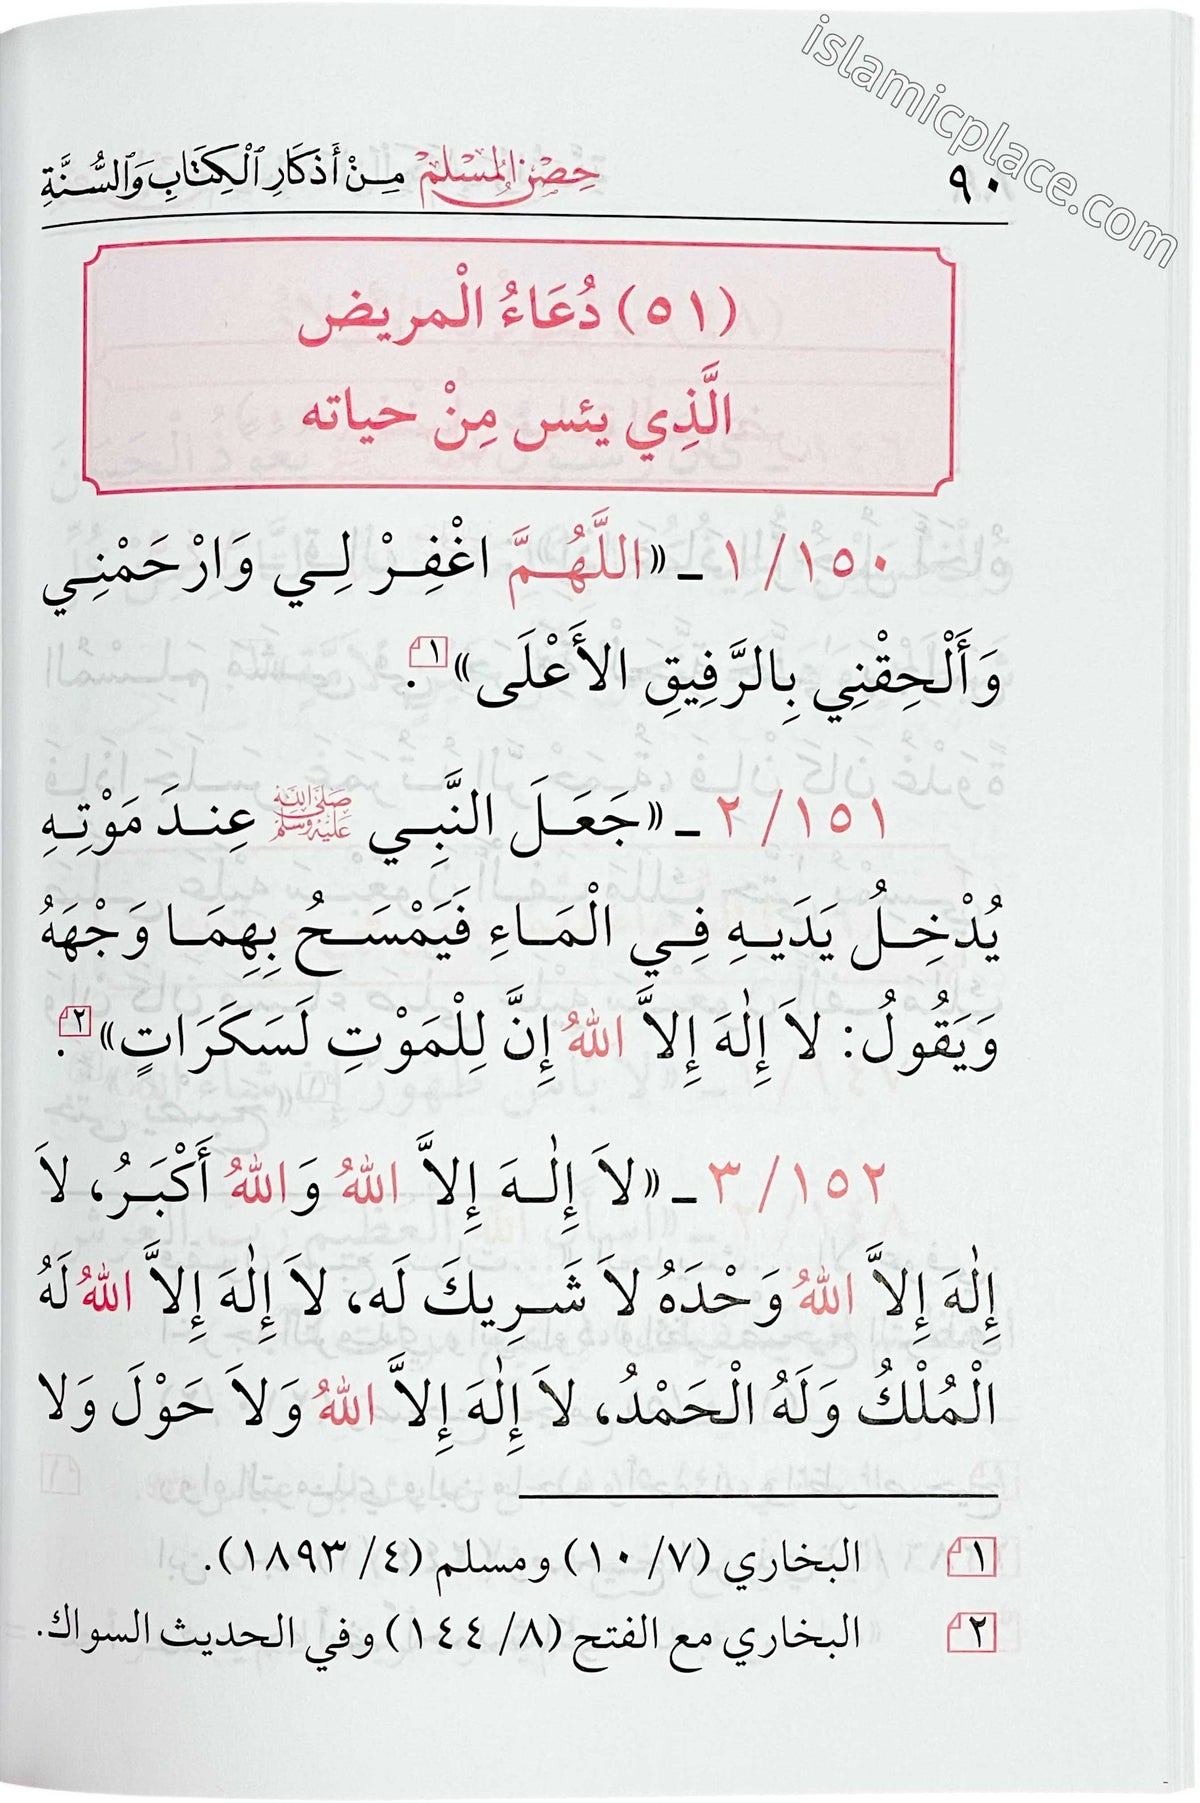 islamicplace.com
٩٠ حِصْنُ الْمُسْلِمِ مِنْ أَذْكَارِ الْكِتَابِ وَالسُّنَّةِ
(٥١) دُعَاءُ الْمريض
الَّذِي يئس مِنْ حياته
١٥٠/ ١ ـ «اللَّهُـمَّ اغْفِـرْ لِـي وَارْحَمْنِـي
وَأَلْحِقْنِي بِالرَّفِيقِ الأَعْلَى» ١ .
١٥١/ ٢ ـ «جَعَـلَ النَّبِـي ﷺ عِنـدَ مَوْتِـهِ
يُدْخِـلُ يَدَيـهِ فِـي الْمَـاءِ فَيَمْسَـحُ بِهِمَـا وَجْهَهُ
وَيَقُولُ: لاَ إِلٰهَ إِلاَّ اللهُ إِنَّ لِلْمَوْتِ لَسَكَرَاتٍ» ٢ .
١٥٢/ ٣ ـ «لاَ إِلٰـهَ إِلاَّ اللهُ وَاللهُ أَكْبَـرُ، لاَ
إِلٰهَ إِلاَّ اللهُ وَحْدَهُ لاَ شَـرِيكَ لَه، لاَ إِلٰهَ إِلاَّ اللهُ لَهُ
الْمُلْكُ وَلَهُ الْحَمْدُ، لاَ إِلٰهَ إِلاَّ اللهُ وَلاَ حَوْلَ وَلا
١ البخاري (٧/ ١٠) ومسلم (٤/ ١٨٩٣).
٢ البخاري مع الفتح (٨/ ١٤٤) وفي الحديث السواك.